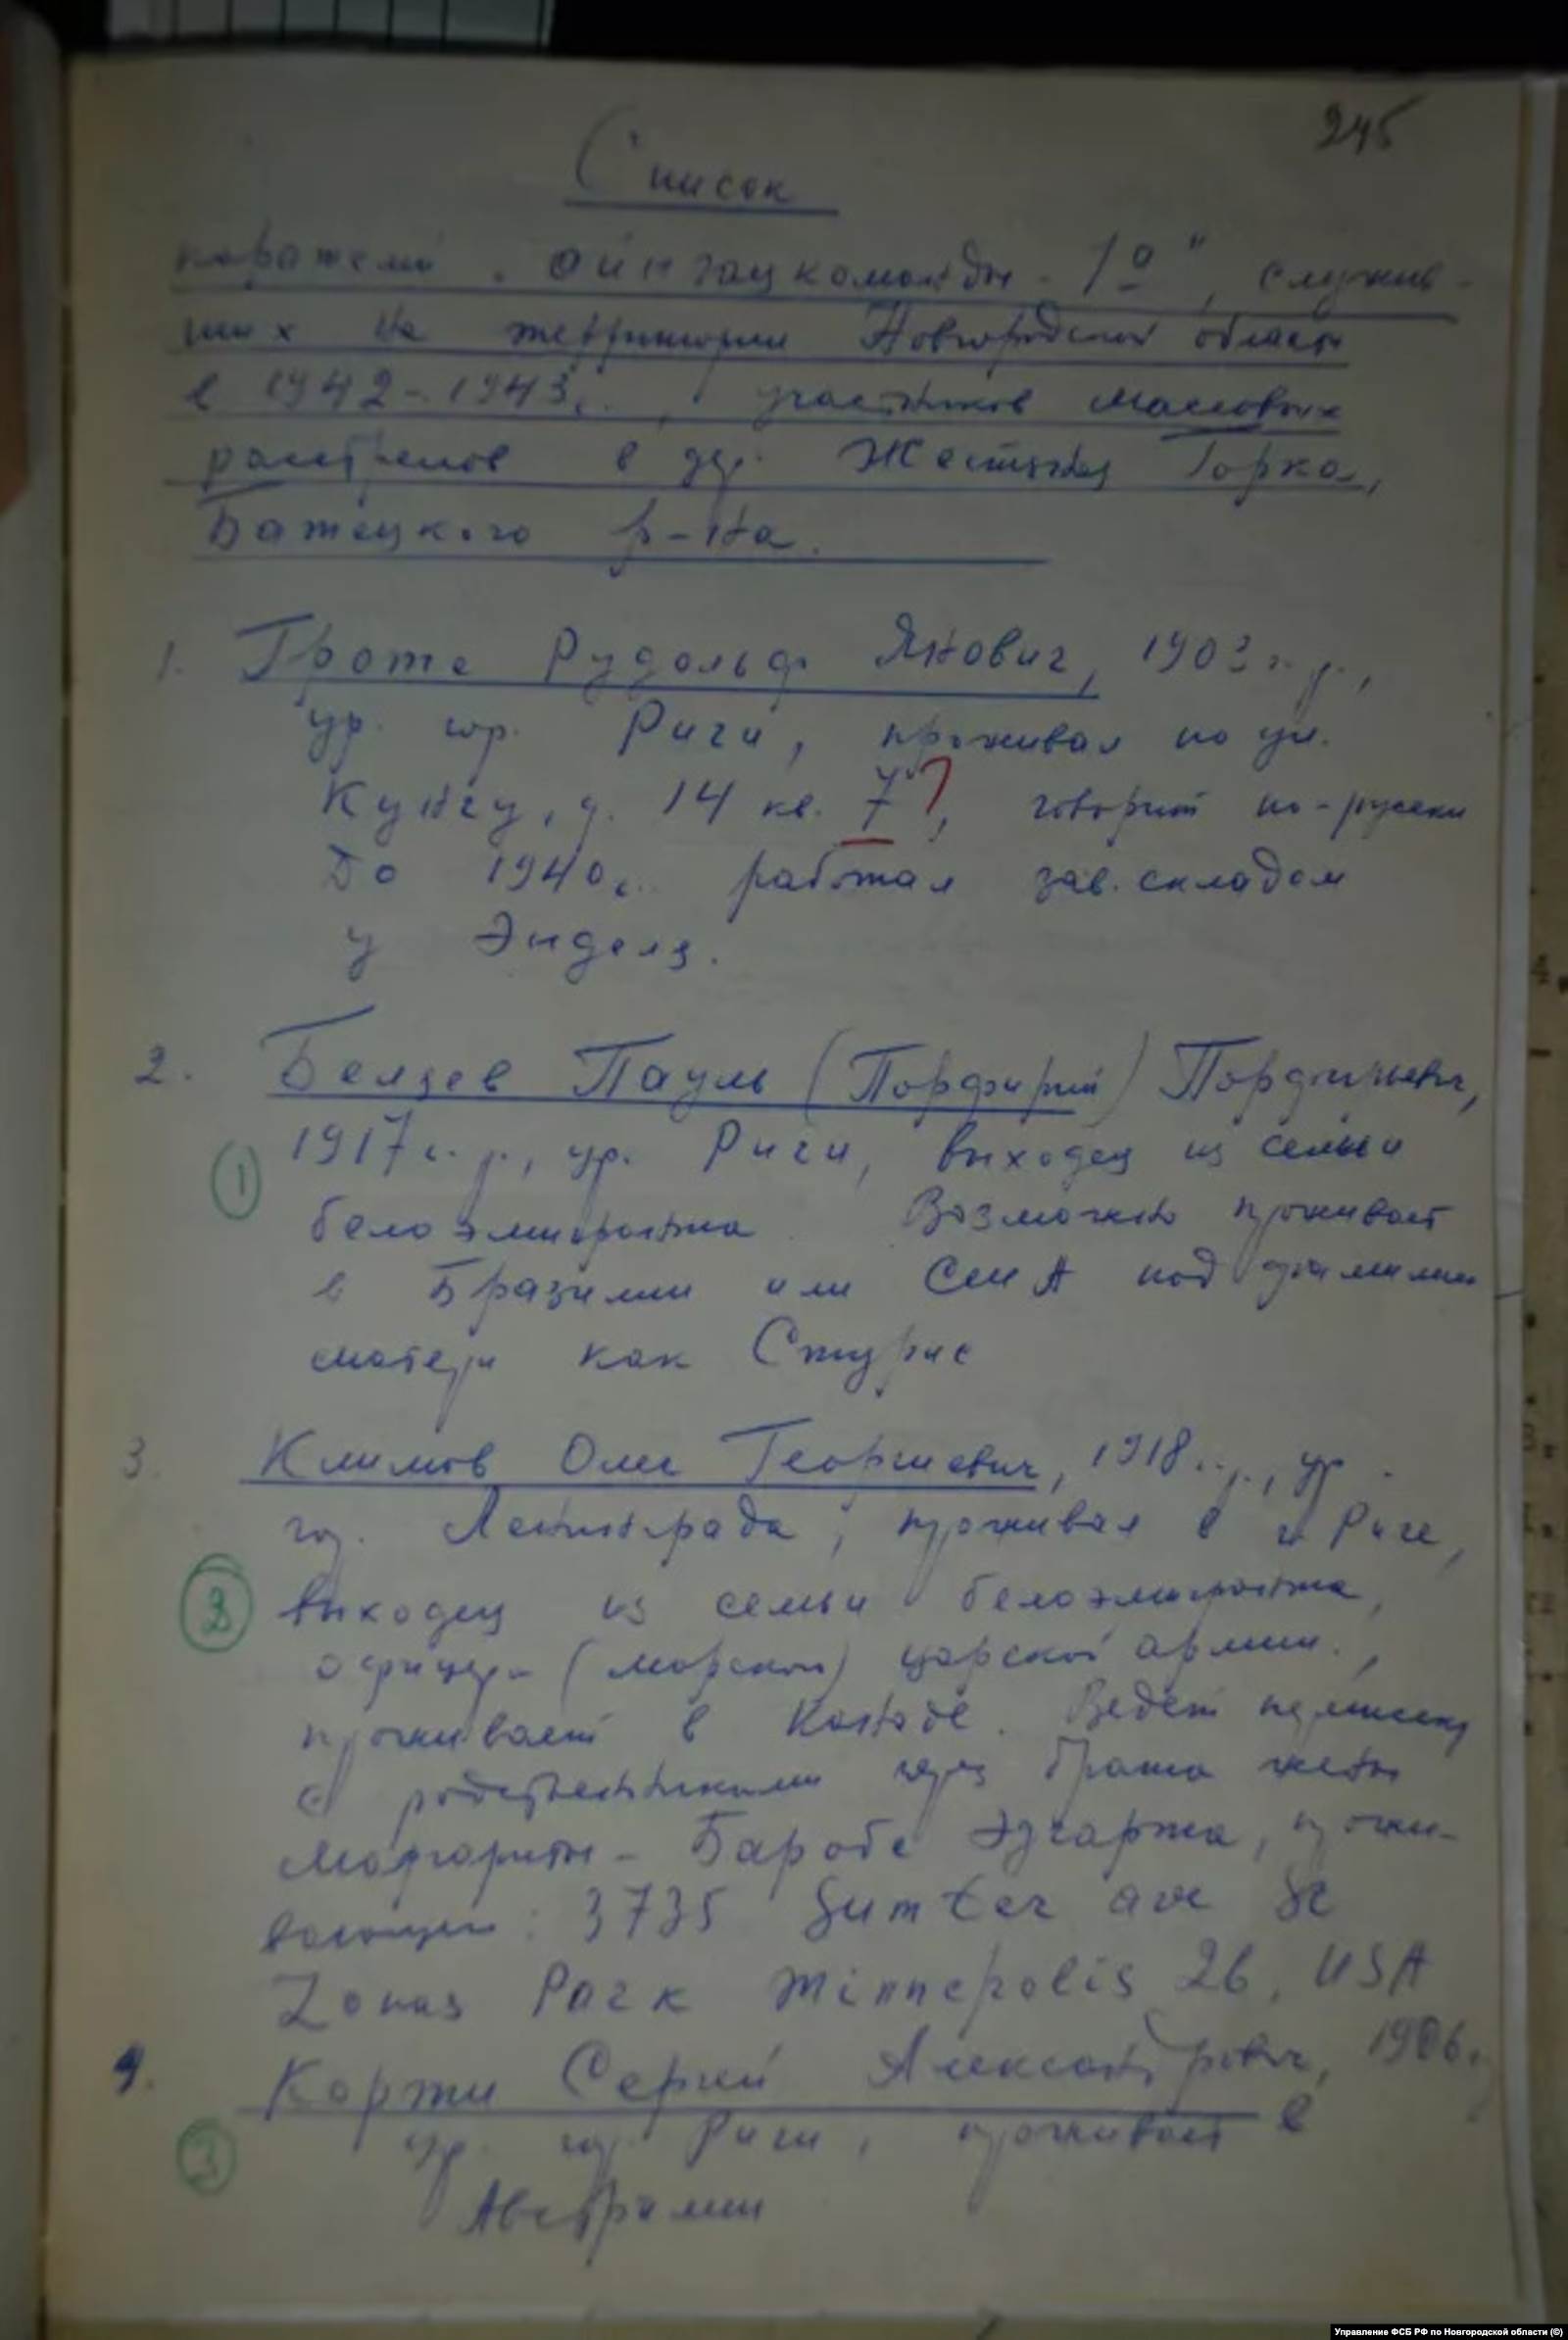 245
Список
карателей „айнзацкоманды - 1а", служив-
ших на территории Новгородской области
в 1942-1943г., участников массовых
расстрелов в дер. Жестяная Горка,
Батецкого р-на.
1. Гроте Рудольф Янович, 1903 г.р.,
ур. гор. Риги, проживал по ул.
Кунгу, д. 14 кв. 7?, говорит по-русски
До 1940г. работал зав. складом
у Энделя.
2. Беляев Пауль (Порфирий) Порфирьевич,
1 1917 г.р., ур. Риги, выходец из семьи
белоэмигранта. Возможно проживает
в Бразилии или США под фамилией
матери как Стурис
3. Климов Олег Георгиевич, 1918 г.р., ур.
гор. Ленинграда, проживал в г. Риге,
2 выходец из семьи белоэмигранта,
офицера (морской) царской армии.,
проживает в Канаде. Ведет переписку
с родственниками через брата жены
Маргариты - Баробс Эдгарта, прожи-
вающего: 3735 Sumter ave
Park Minnepolis 26, USA
4. Коржи Сергей Александрович, 1906г.
3 ур. гор. Риги, проживает в
Австралии
Управление ФСБ РФ по Новгородской области (©)